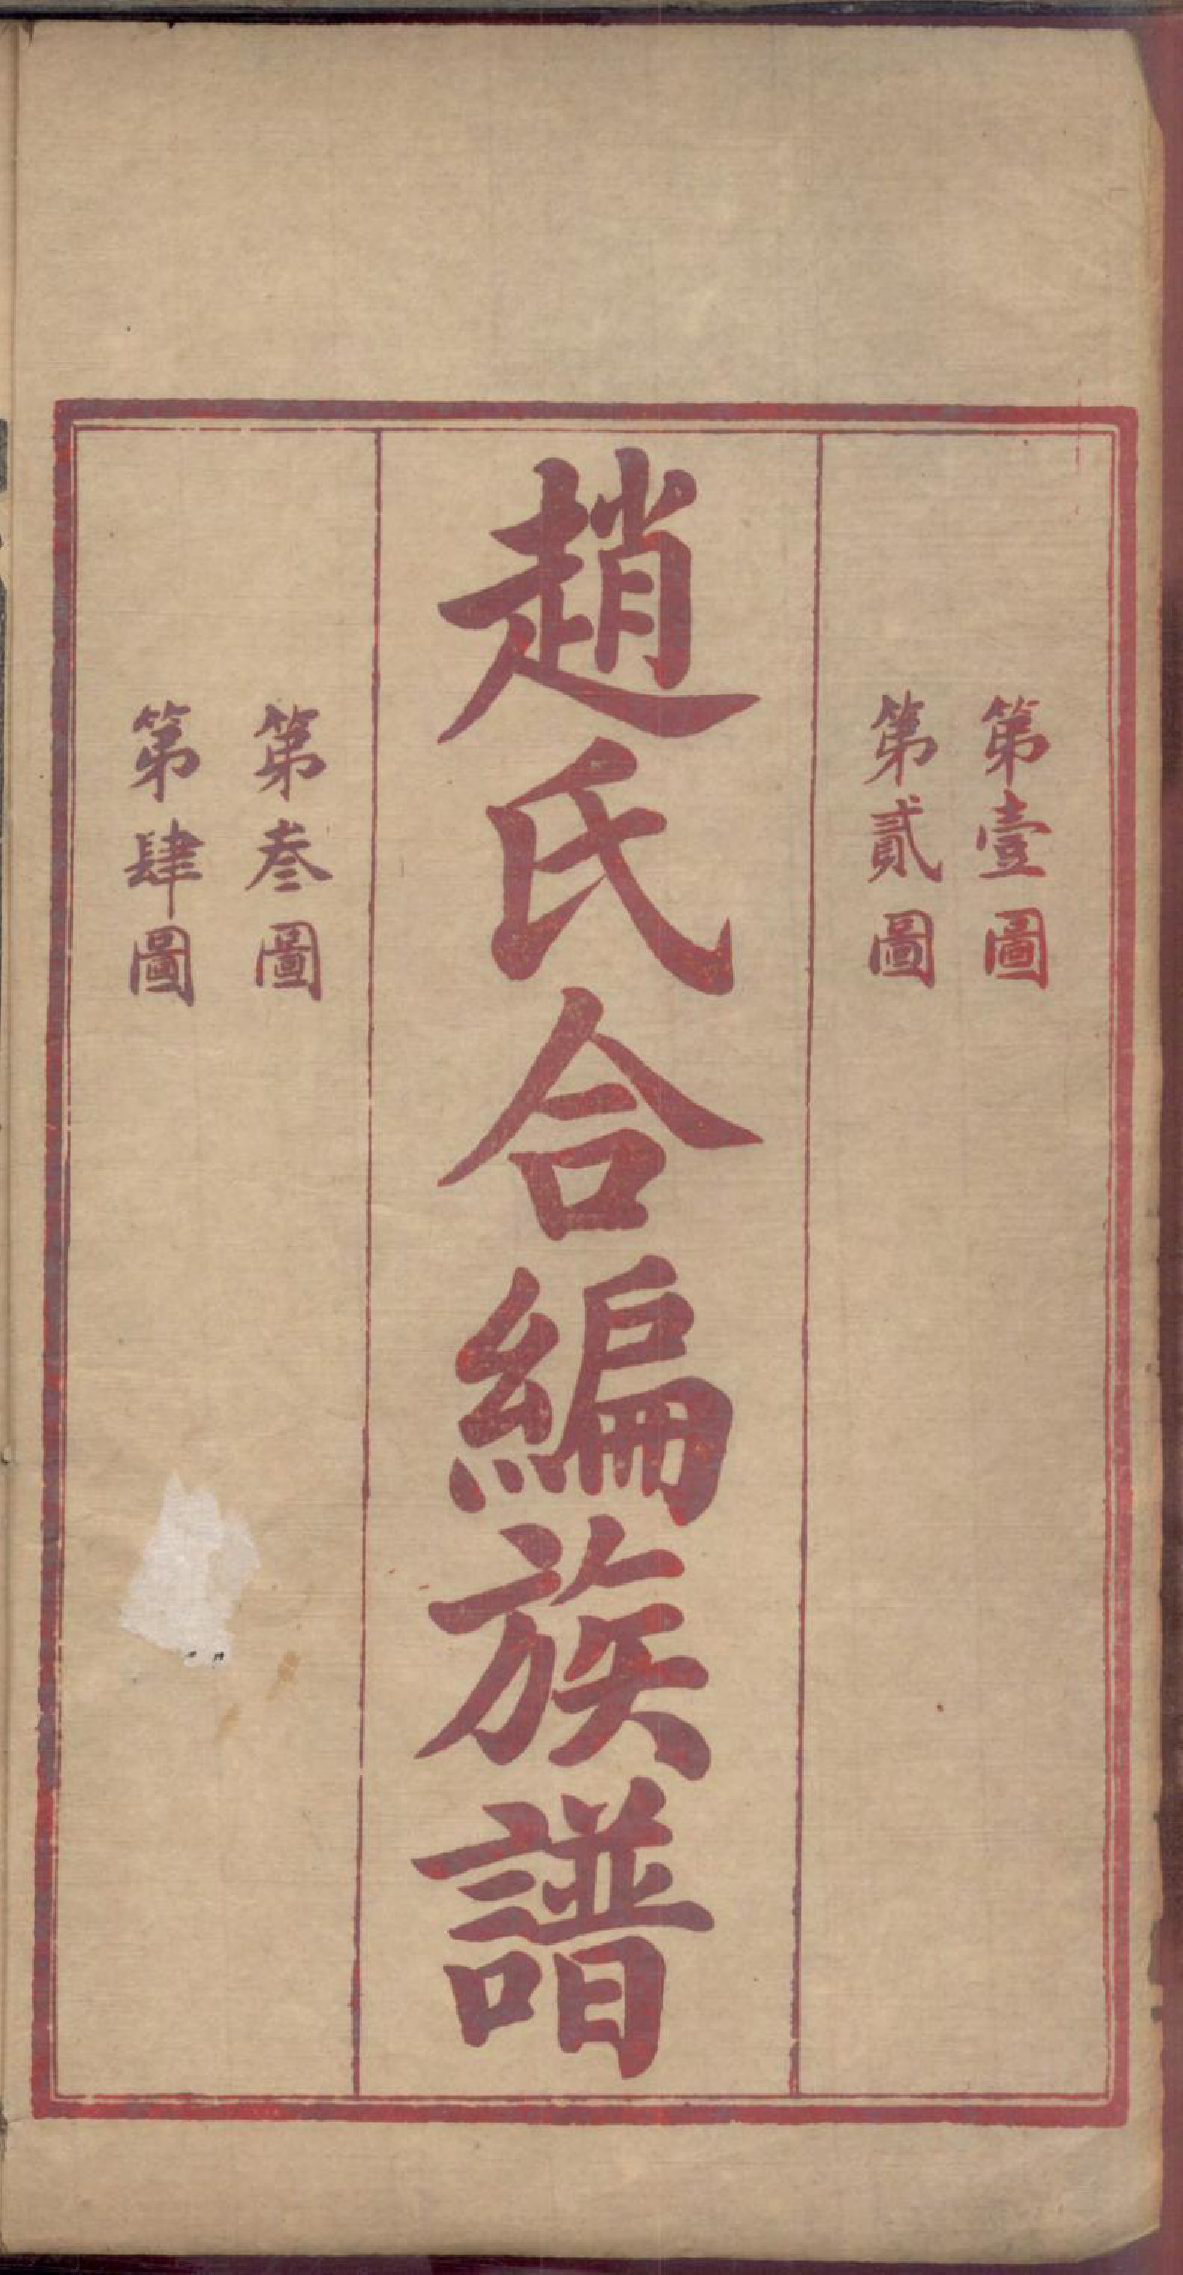 第壹圖
第貳圖
趙氏合編族譜
第叄圖
第肆圖